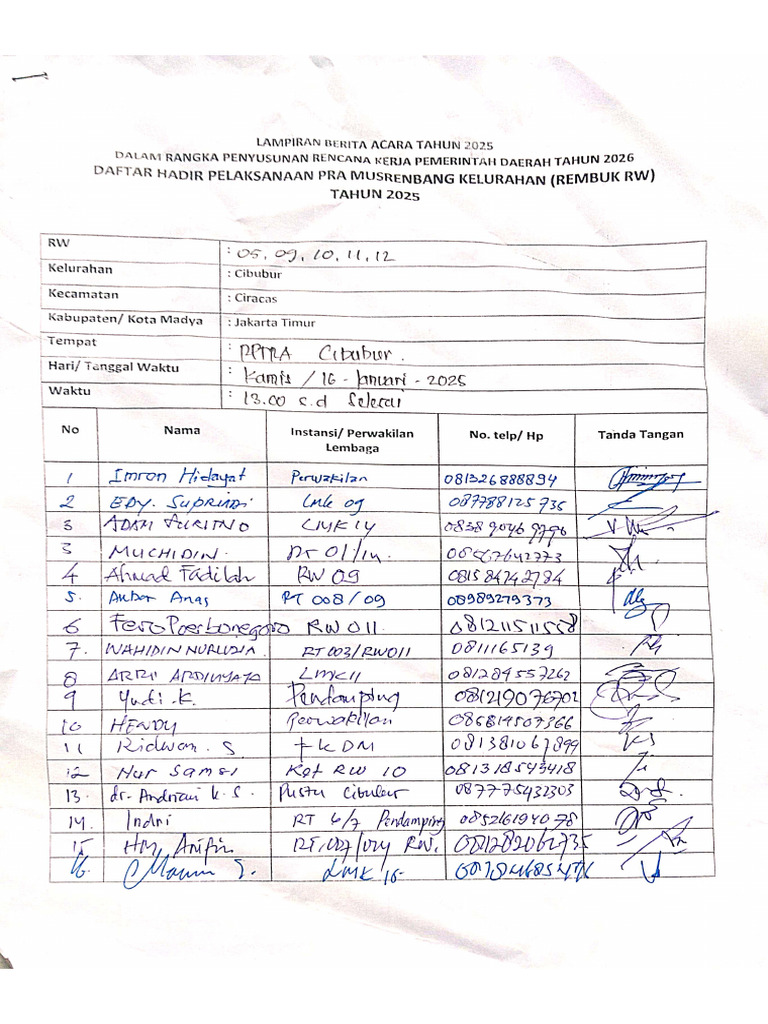 LAMPIRAN BERITA ACARA TAHUN 2025
DALAM RANGKA PENYUSUNAN RENCANA KERJA PEMERINTAH DAERAH TAHUN 2026
DAFTAR HADIR PELAKSANAAN PRA MUSRENBANG KELURAHAN (REMBUK RW)
TAHUN 2025
RW : 05. 09. 10. 11. 12
Kelurahan : Cibubur
Kecamatan : Ciracas
Kabupaten/ Kota Madya : Jakarta Timur
Tempat : RPTRA Cibubur.
Hari/ Tanggal Waktu : Kamis / 16 - Januari - 2025
Waktu : 13.00 s.d Selesai
No Nama Instansi/ Perwakilan Lembaga No. telp/ Hp Tanda Tangan
1 Imron Hidayat Perwakilan 081326888894
2 EDY. Supriadi LMK 09 087788125735
3 ADAM LMK 14
3 MUCHIDIN. RT 01/
4 Ahmad Fadilah RW 09 081584742784
5. Anbar Anas RT 008/09 08989279373
6 Fero Poerbonegoro RW 011 081211511558
7. WAHIDIN NURUDIN RT 003/RW011 0811165139
8 ARRI LMK 11 081284557262
9 Yudi. K. Pendamping 081219076702
10 HENDY Perwakilan 085814507366
11 Ridwan. S. FKDM 081381067899
12 Nur Samsi Ket RW 10 081318543418
13. dr. Andriani K. S. Pustu Cibubur 087775432303
14. Indri RT 6/7 Pendamping 085261694078
15 HM Arifin RT.007/ RW. 081282062735
16. S. LMK 10